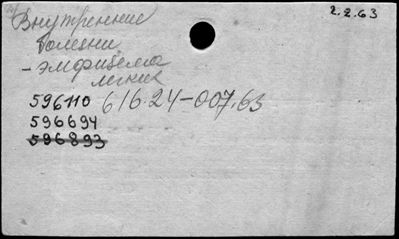 2.2.63
Внутренние
болезни
- эмфизема
легких
596110 616.24-007.63
596694
596893